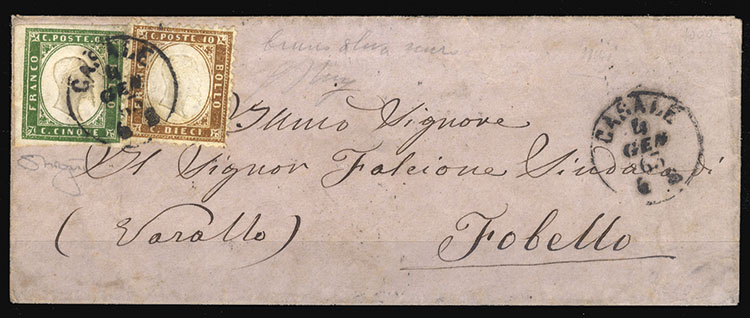 C. POSTE
FRANCO
C. CINQUE
C. POSTE 10
BOLLO
C. DIECI
CASALE
GEN
CASALE
4
GEN
63
Illmo Signore
Il Signor Falcione Sindaco di
(Varallo) Fobello